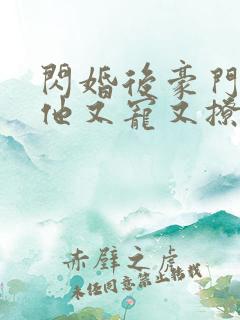 閃婚後豪門
他又寵又撩
赤壁之虎
未任同意禁止轉載